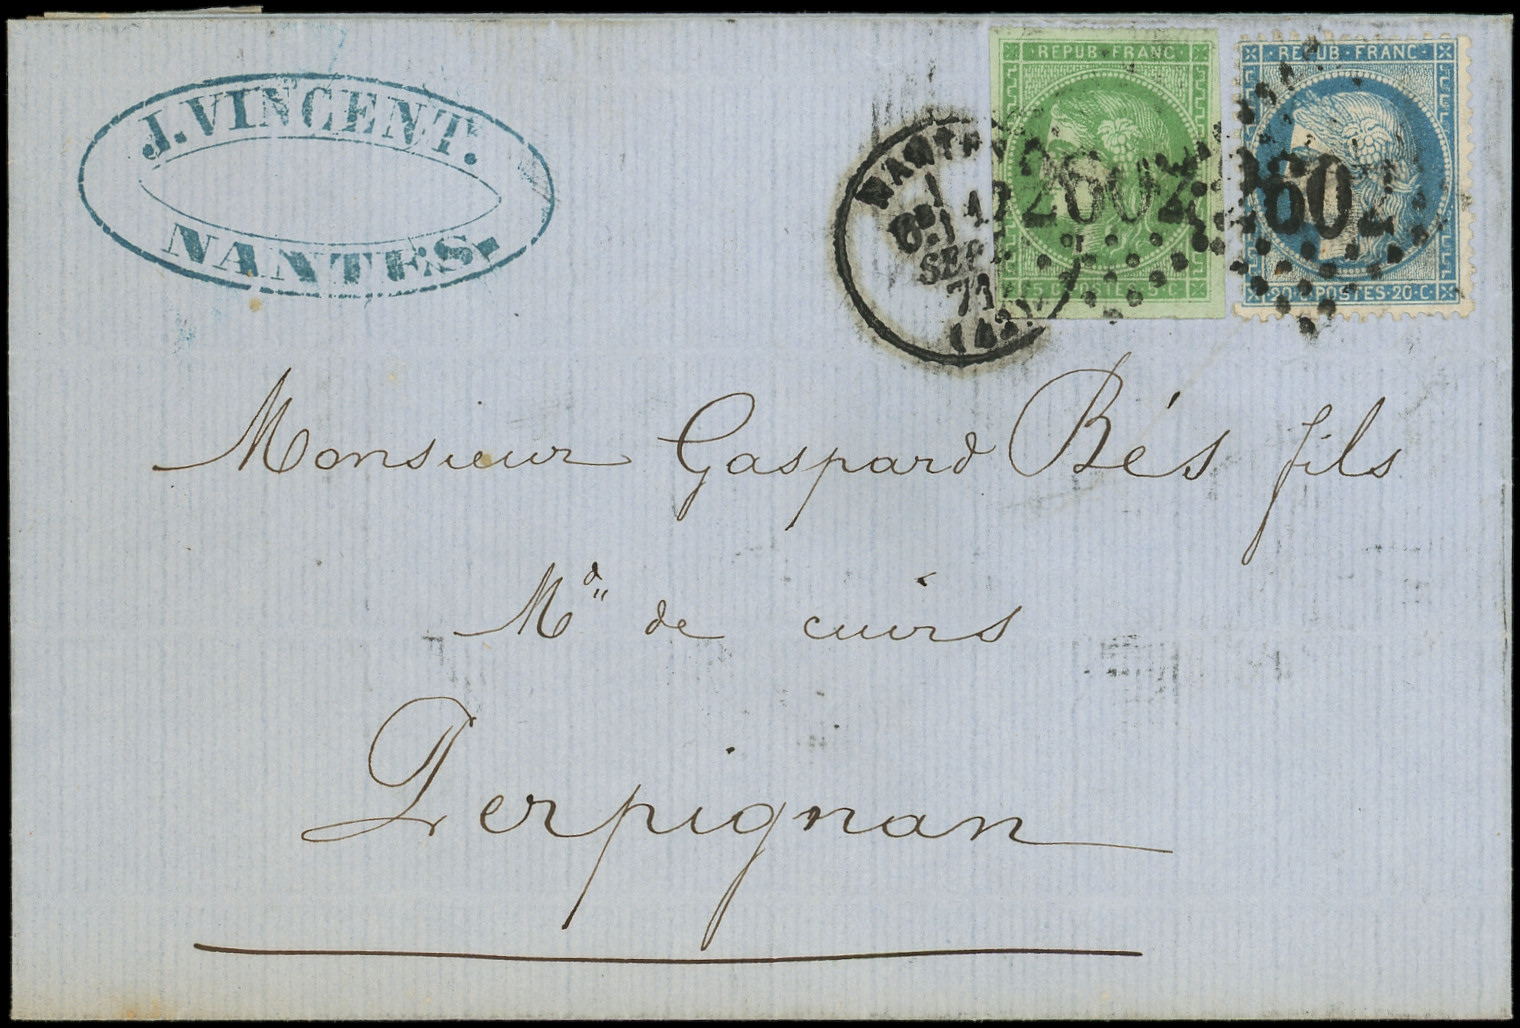 J. VINCENT.
NANTES.
REPUB · FRANC
REPUB · FRANC ·
NANTES
SEPT
71
(42)
2602
2602
5 · C · POSTES · 5 · C ·
20 · C · POSTES · 20 · C ·
Monsieur Gaspard Bés fils
Md" de cuirs
Perpignan